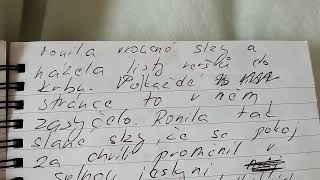 ronila vroucné slzy a
házela listy veršů do
krbu. Pokaždé
stránce to v něm
zasyčelo. Ronila tak
slané slzy, že se pokoj
za chvíli proměnil v
solnou jeskyni